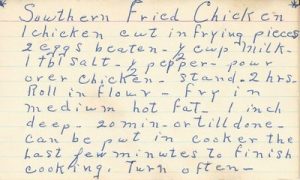 Southern Fried Chicken
1 chicken cut in frying pieces
2 eggs beaten - 1/2 cup milk -
1 tbl salt - 1/2 pepper - pour
over chicken - stand - 2 hrs.
Roll in flour - fry in
medium hot fat - 1 inch
deep - 20 min - or till done -
can be put in cooker the
last few minutes to finish
cooking. Turn often -